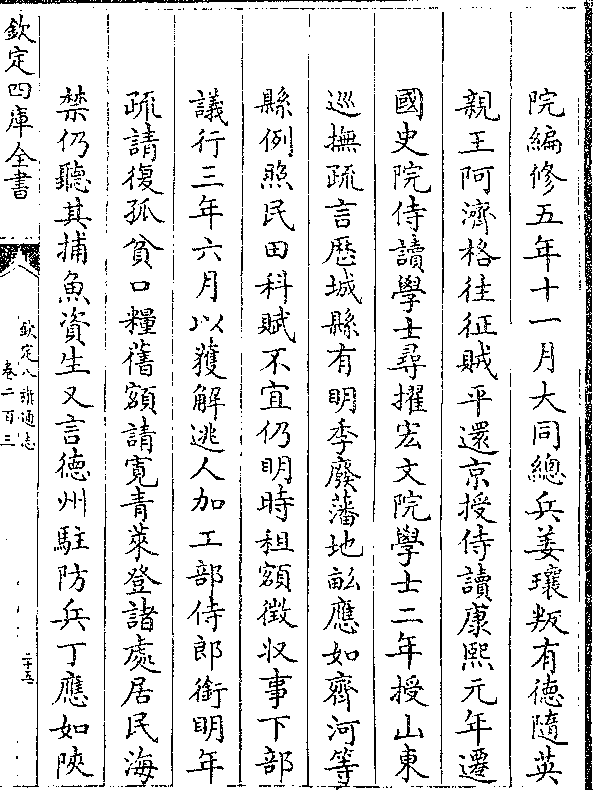 院編修五年十一月大同總兵姜瓖叛有德隨英
親王阿濟格往征賊平還京授侍讀康熙元年遷
國史院侍讀學士尋擢宏文院學士二年授山東
巡撫疏言歴城縣有明季廢藩地畝應如齊河等
縣例照民田科賦不宜仍明時租額徴收事下部
議行三年六月以獲解逃人加工部侍郎銜明年
疏請復孤貧口糧舊額請寛青萊登諸處居民海
禁仍聽其捕魚資生又言徳州駐防兵丁應如陜
欽定四庫全書
欽定八旗通志
卷二百三
二十五